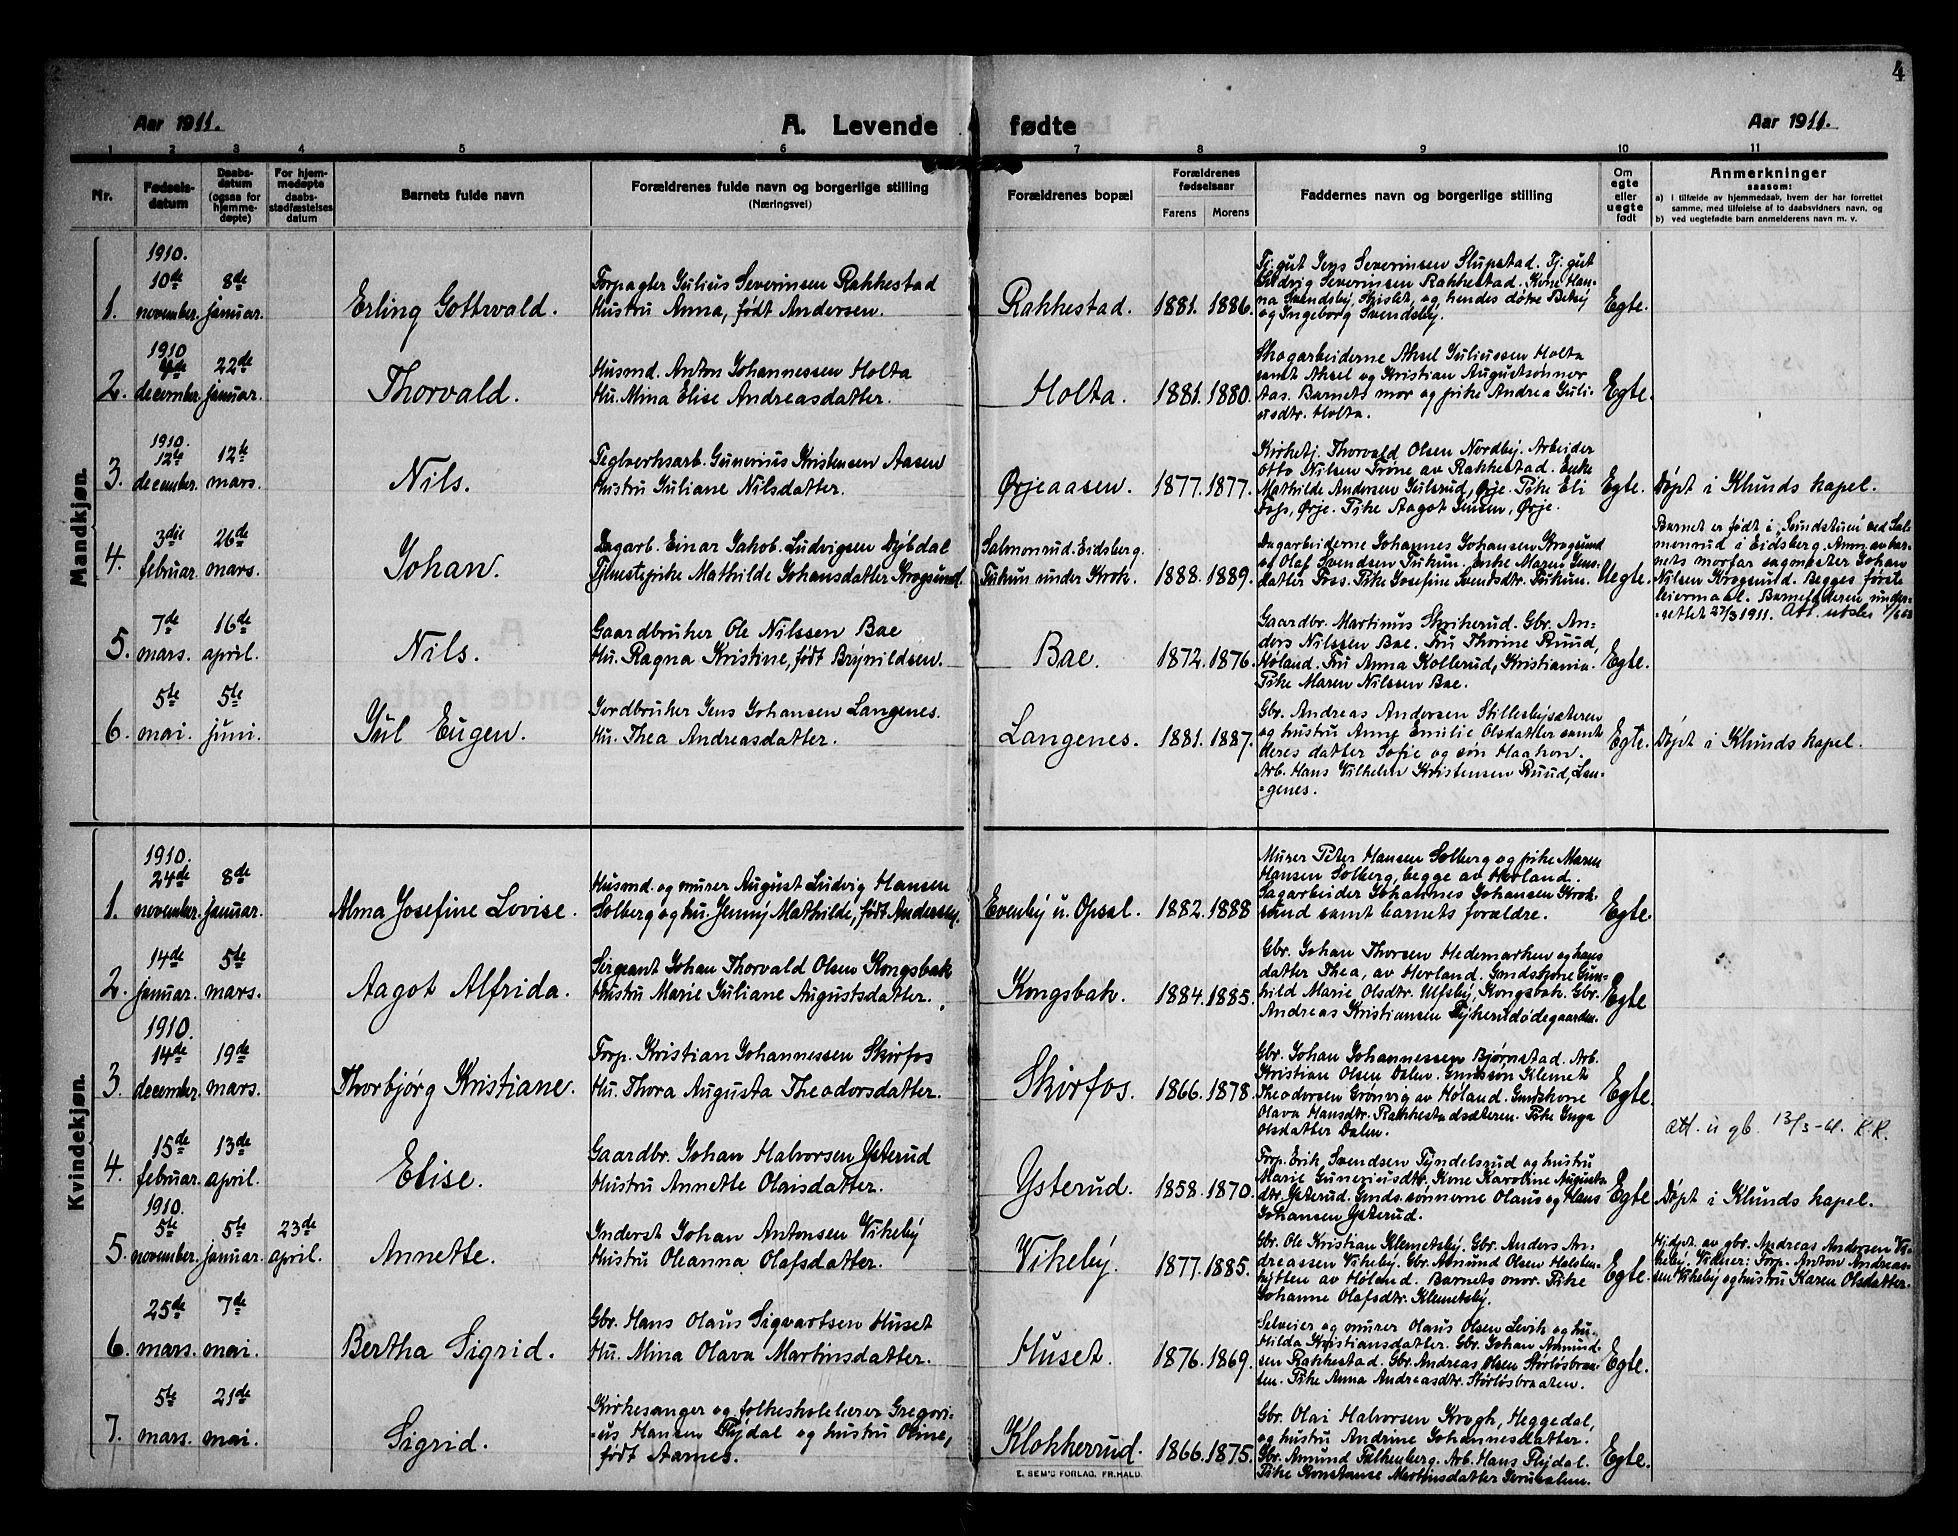 4
Aar 1911.
A. Levende fødte
Aar 1911.
1 2 3 4 5 6 7 8 9 10 11
Nr.
Fødsels-
datum
Daabs-
datum
(ogsaa for
hjemme-
døpte)
For hjem-
medøpte
daabs-
stadfæstelses
datum
Barnets fulde navn
Forældrenes fulde navn og borgerlige stilling
(Næringsvei)
Forældrenes bopæl
Forældrenes
fødselsaar
Farens Morens
Faddernes navn og borgerlige stilling
Om
egte
eller
uegte
født
Anmerkninger
saasom:
a) i tilfælde av hjemmedaab, hvem der har forrettet
samme, med tilføielse af to daabsvidners navn, og
b) ved uegtefødte barn anmelderens navn m. v.
Mandkjøn.
1.
1910.
10de
november.
8de
januar.
Erling Gottwald.
Forpagter Julius Severinsen Rakkestad
Hustru Anna, født Andersen.
Rakkestad.
1881. 1886.
Tj.gut Jens Severinsen Slupstad. Tj. gut
Ludvig Severinsen Rakkestad. Kone Han-
na Svendsby, og hendes døtre Betsy
og Ingeborg Svendsby.
Egte.
2.
1910
4de
december.
22de
januar.
Thorvald.
Husmd. Anton Johannessen Holta
Hu. Mina Elise Andreasdatter.
Holta.
1881. 1880.
Skogarbeiderne Aksel Juliussen Holta
samt Aksel og Kristian Augustsønner
Aas. Barnets mor og pike Andrea Juli-
usdtr. Holta.
Egte.
3.
1910.
12te
december.
12te
mars.
Nils.
Teglverksarb. Gunerius Kristensen Aasen
Hustru Juliane Nilsdatter.
Ørjeaasen.
1877. 1877.
Kirketj. Thorvald Olsen Nordby. Arbeider
Otto Nilsen Trøne av Rakkestad. Enke
Mathilde Andersen Julsrud, Ørje. Pike Eli
Foss, Ørje. Pike Aagot Jensen, Ørje.
Egte.
Døpt i Klunds kapel.
4.
3die
februar.
26de
mars.
Johan.
Dagarb. Einar Jakob Ludvigsen Dybdal
Tjenestepike Mathilde Johansdatter Krogsund.
Salmonrud. Eidsberg.
Tukun under Krok.
1888. 1889.
Dagarbeiderne Johannes Johansen Krogsund
og Olaf Svendsen Tukun. Enke Maren Jens-
datter Foss. Pike Josefine Svendsdtr. Tukun.
Uegte.
Barnet er født i Sundstuen ved Sal-
monrud i Eidsberg. Anm. av bar-
nets morfar sagmester Johan
Nilsen Krogsund. Begges første
leiermaal. Barnefaderen under-
rettet 27/3 1911. Att. utst.
5.
7de
mars.
16de
april.
Nils.
Gaardbruker Ole Nilssen Bae
Hu. Ragna Kristine, født Brynildsen.
Bae.
1872. 1876.
Gaardbr. Martinius Skrikerud. Gbr. An-
ders Nilssen Bae. Fru Thorine Ruud,
Høland. Fru Anna Kollerud, Kristiania.
Pike Maren Nilssen Bae.
Egte.
6.
5te
mai.
5te
juni.
Jul Eugen.
Jordbruker Jens Johansen Langenes.
Hu. Thea Andreasdatter.
Langenes.
1881. 1887.
Gbr. Andreas Andersen Stillesbysæteren
og hustru Anne Emilie Olsdatter samt
deres datter Sofie og søn Haakon.
Arb. Hans Vilhelm Kristensen Ruud, Lan-
genes.
Egte.
Døpt i Klunds kapel.
Kvindekjøn.
1.
1910.
24de
november.
8de
januar.
Alma Josefine Lovise.
Husmd. og murer August Ludvig Hansen
Solberg og hu. Jenny Mathilde, født Andersby.
Evenby u. Opsal.
1882. 1888
Murer Peter Hansen Solberg og pike Maren
Hansen Solberg, begge av Herland.
Sagarbeider Johannes Johansen Krok-
sund samt barnets forældre.
Egte
2.
14de
januar.
5te
mars.
Aagot Alfrida.
Sergeant Johan Thorvald Olsen Kongsbak
Hustru Marie Juliane Augustsdatter.
Kongsbak.
1884. 1885.
Gbr. Johan Thorsen Hedemarken og hans
datter Thea, av Herland. Gaardskone Gun-
hild Marie Olsdtr. Ulfsby, Kongsbak. Gbr.
Andreas Kristiansen Tykerudødegaarden.
Egte
3.
1910.
14de
december.
19de
mars.
Thorbjørg Kristiane.
Forp. Kristian Johannessen Skirfos
Hu. Thora Augusta Theodorsdatter.
Skirfos.
1866. 1878.
Gbr. Johan Johannessen Bjørnstad. Arb.
Kristian Olsen Dalen. Gaardssøn Klemet
Theodorsen Grønvig av Høland. Gaardskone
Olava Hansdtr. Rakkestadsæteren. Pike Inga
Olsdatter Dalen.
Egte.
att. u gb. 13/3-41. K.R.
4.
15de
februar.
13de
april.
Elise.
Gaardbr. Johan Halvorsen Ysterud
Hustru Annette Olausdatter.
Ysterud.
1858. 1870.
Forp. Erik Svendsen Tyndelsrud og hustru
Marie Guneriusdtr. Kone Karoline Augusts-
dtr. Ysterud. Gaardssønnerne Olaus og Hans
Johansen Ysterud.
Egte
Døpt i Klunds kapel.
5.
1910.
5te
november.
5te
januar.
23de
april.
Annette.
Inderst Johan Antonsen Vikeby
Hustru Oleanna Olafsdatter.
Vikeby.
1877. 1885.
Gbr. Ole Kristian Klemetsby. Gbr. Anders An-
dreassen Vikeby. Gbr. Amund Olsen Holsten-
hytten av Høland. Barnets mor. Pike
Johanne Olafsdtr. Klemetsby.
Egte.
Hjdpt. av gbr. Andreas Andersen Vi-
keby. Vidner: Forp. Anton Andreas-
sen Vikeby og hustru Karen Olsdatter.
6.
25de
mars.
7de
mai.
Bertha Sigrid.
Gbr. Hans Olaus Sigvartsen Huset
Hu. Mina Olava Martinsdatter.
Huset.
1876. 1869.
Selveier og murer Olaus Olsen Levik og hu.
Hilda Kristiansdatter. Gbr. Johan Amund-
sen Rakkestad. Gbr. Andreas Olsen Størløsbraa-
ten. Pike Anna Andreasdtr. Størløsbraaten.
Egte.
7.
5te
mars.
21de
mai.
Sigrid.
Kirkesanger og folkeskolelærer Gregori-
us Hansen Fløjdal og hustru Oline,
født Aarnes.
Klokkerrud.
1866. 1875.
Gbr. Olai Halvorsen Krogh, Heggedal,
og hustru Andrine Johannesdatter.
Gbr. Amund Falkenberg. Arb. Hans Fløjdal.
Pike Konstanse Martinsdatter Jerusalem.
Egte.
E. SEM'S FORLAG, FR.HALD.